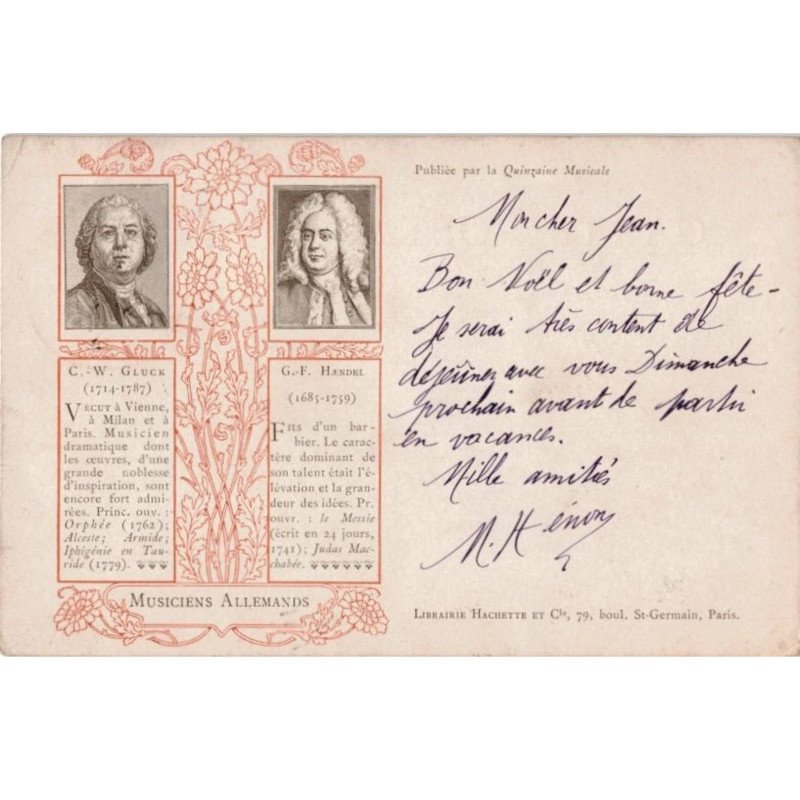 C.-W. GLUCK
(1714-1787)
VÉCUT à Vienne,
à Milan et à
Paris. Musicien
dramatique dont
les œuvres, d'une
grande noblesse
d'inspiration, sont
encore fort admi-
rées. Princ. ouv. :
Orphée (1762);
Alceste; Armide;
Iphigénie en Tau-
ride (1779).
G.-F. HÆNDEL
(1685-1759)
FILS d'un bar-
bier. Le carac-
tère dominant de
son talent était l'é-
lévation et la gran-
deur des idées. Pr.
ouvr. : le Messie
(écrit en 24 jours,
1741); Judas Mac-
chabée.
MUSICIENS ALLEMANDS
Publiée par la Quinzaine Musicale
Mon cher Jean.
Bon Noël et bonne fête -
Je serai très content de
déjeûner avec vous Dimanche
prochain avant de partir
en vacances.
Mille amitiés
M. Hénon
LIBRAIRIE HACHETTE ET Cie, 79, boul. St-Germain, Paris.